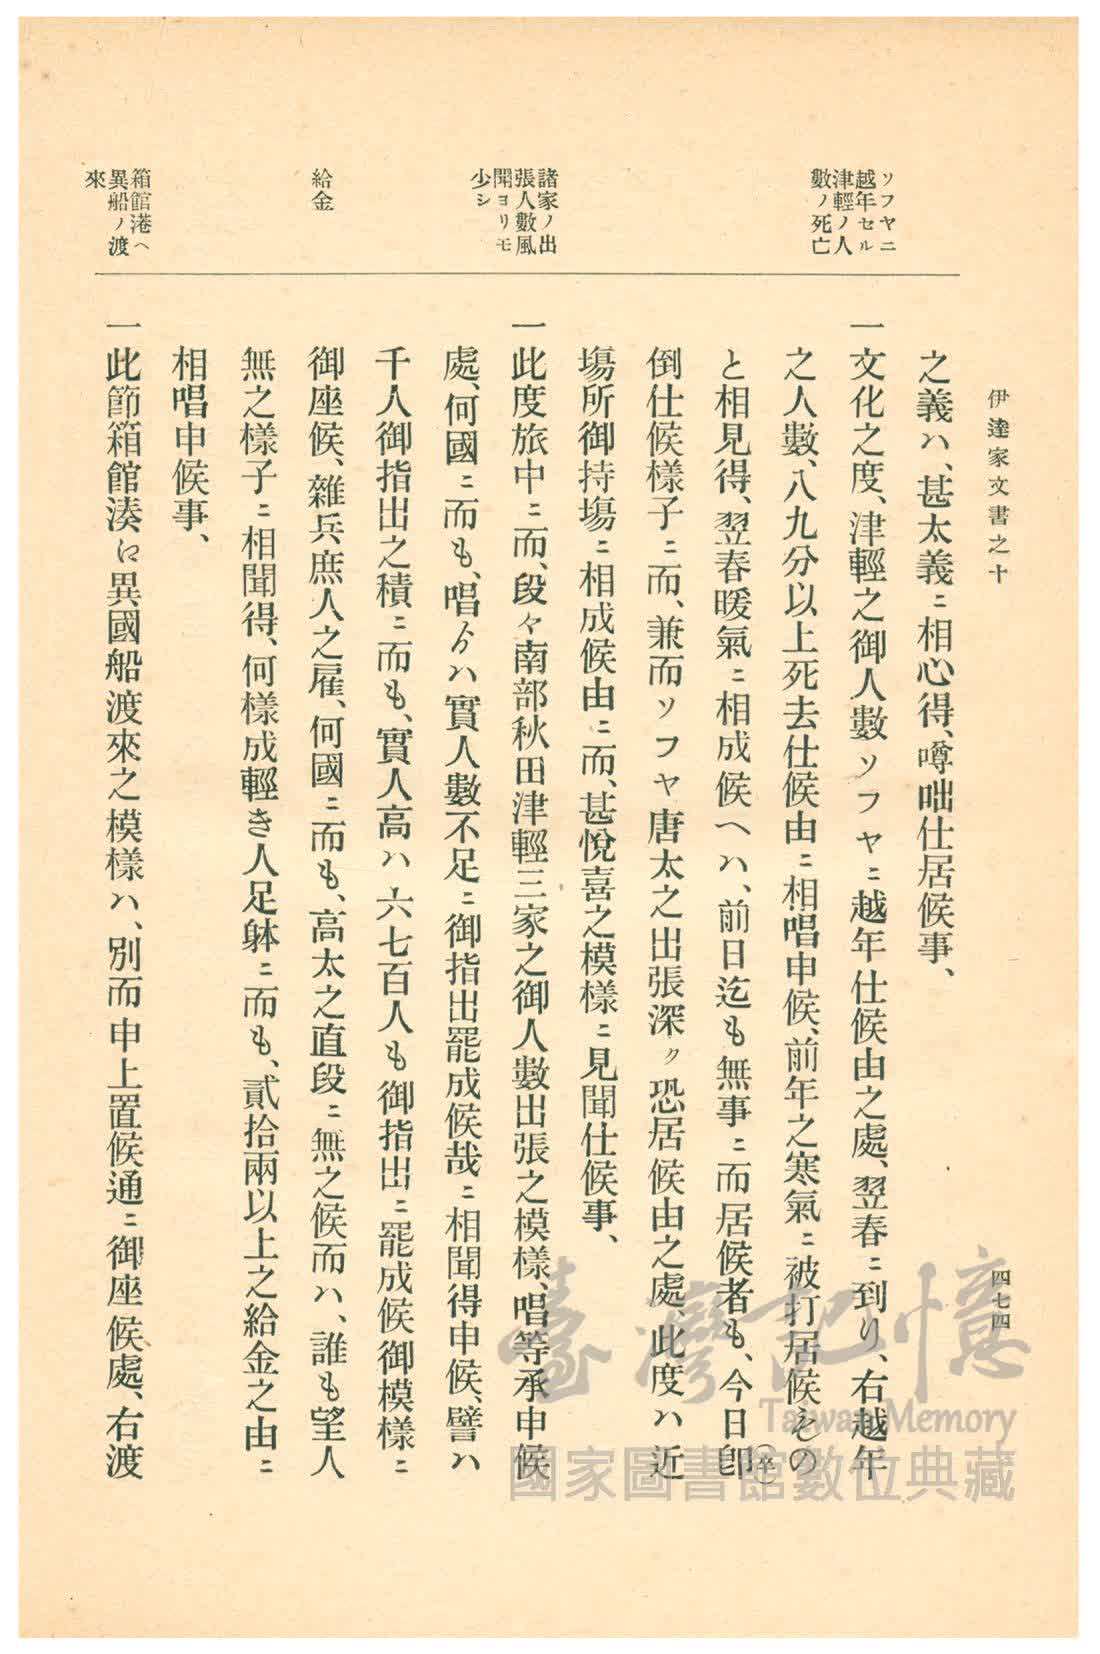 伊達家文書之十
四七四
ソフヤニ
越年セル
津輕ノ人
數ノ死亡
諸家ノ出
張人數風
聞ヨリモ
少シ
給金
箱館港ヘ
異船ノ渡
來
之義ハ、甚太義ニ相心得、噂咄仕居候事、
一文化之度、津輕之御人數ソフヤニ越年仕候由之處、翌春ニ到り、右越年
之人數、八九分以上死去仕候由ニ相唱申候、前年之寒氣ニ被打居候もの
と相見得、翌春暖氣ニ相成候ヘハ、前日迄も無事ニ而居候者も、今日卽
(卒)
倒仕候樣子ニ而、兼而ソフヤ唐太之出張深ク恐居候由之處、此度ハ近
場所御持場ニ相成候由ニ而、甚悅喜之模樣ニ見聞仕候事、
一此度旅中ニ而、段々南部秋田津輕三家之御人數出張之模樣、唱等承申候
處、何國ニ而も、唱ゟハ實人數不足ニ御指出罷成候哉ニ相聞得申候、譬ハ
千人御指出之積ニ而も、實人高ハ六七百人も御指出ニ罷成候御模樣ニ
御座候、雜兵庶人之雇、何國ニ而も、高太之直段ニ無之候而ハ、誰も望人
無之樣子ニ相聞得、何樣成輕き人足躰ニ而も、貳拾兩以上之給金之由ニ
相唱申候事、
一此節箱館湊江異國船渡來之模樣ハ、別而申上置候通ニ御座候處、右渡
臺灣記憶
Taiwan Memory
國家圖書館數位典藏